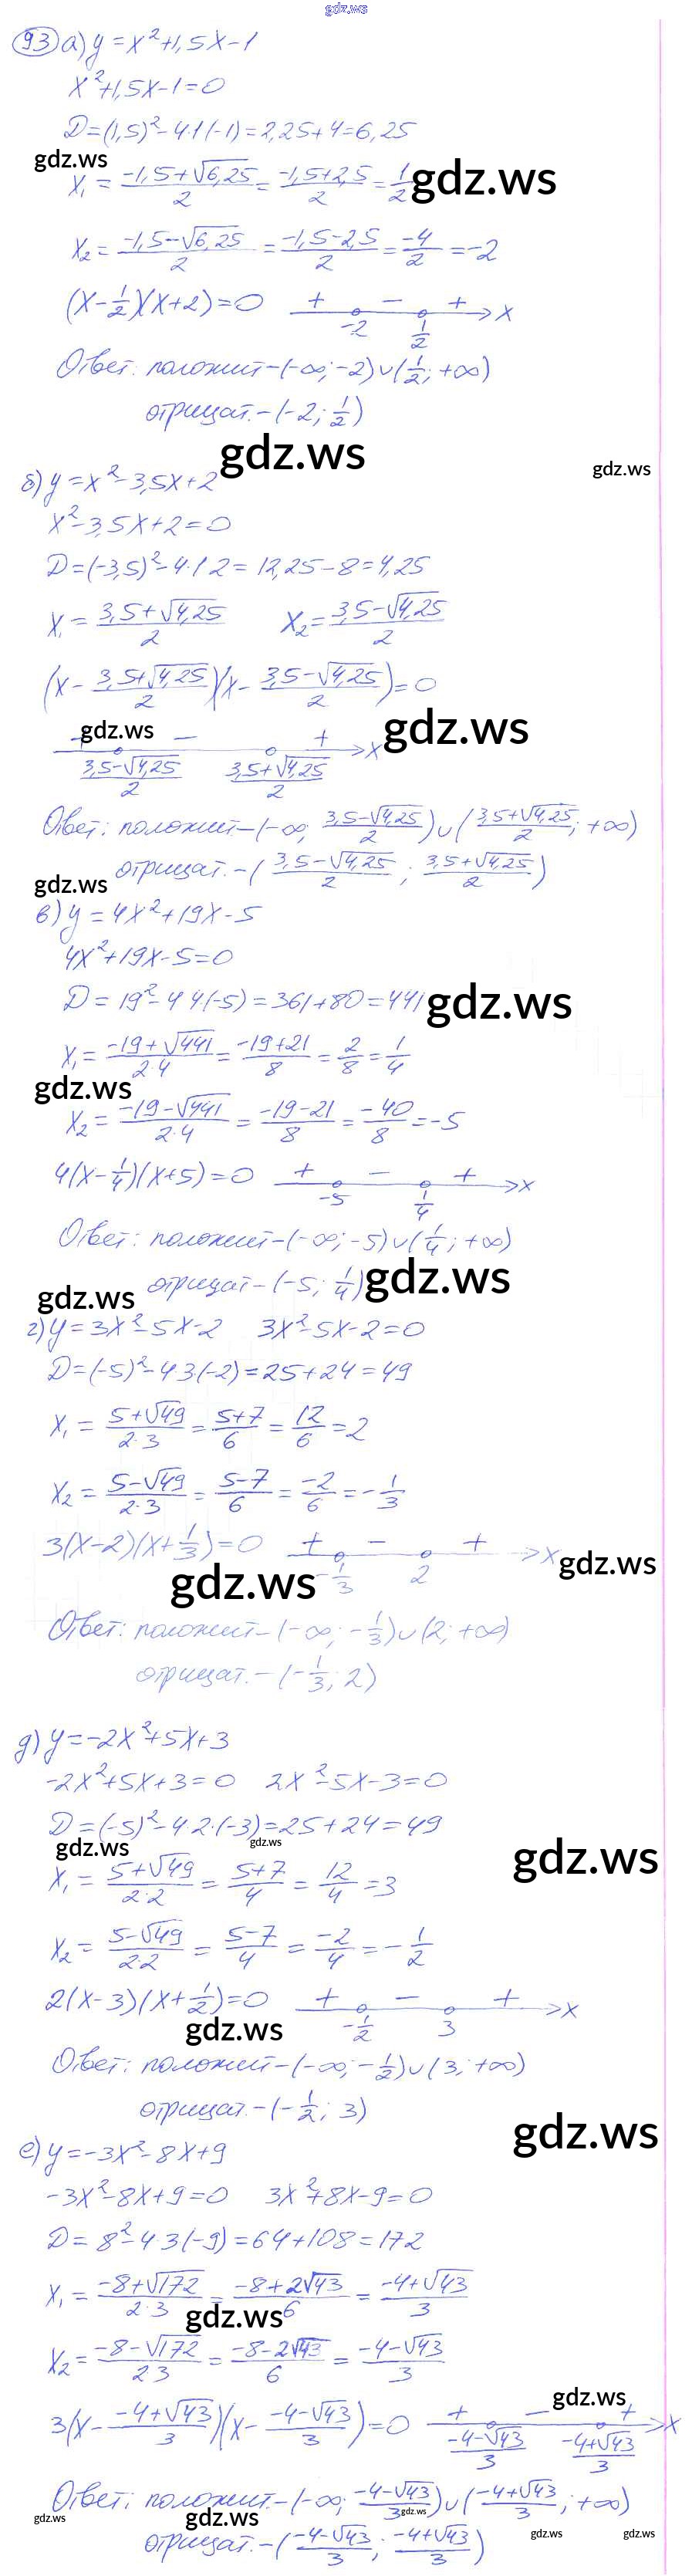 gdz.ws
93 а) y = x² + 1,5x - 1
x² + 1,5x - 1 = 0
D = (1,5)² - 4·1(-1) = 2,25 + 4 = 6,25
gdz.ws
x₁ = (-1,5 + √6,25)/2 = (-1,5 + 2,5)/2 = 1/2 gdz.ws
x₂ = (-1,5 - √6,25)/2 = (-1,5 - 2,5)/2 = -4/2 = -2
(x - 1/2)(x + 2) = 0 + - + x
-2 1/2
Ответ: положит - (-∞; -2) ∪ (1/2; +∞)
отрицат. - (-2; 1/2)
gdz.ws gdz.ws
б) y = x² - 3,5x + 2
x² - 3,5x + 2 = 0
D = (-3,5)² - 4·1·2 = 12,25 - 8 = 4,25
x₁ = (3,5 + √4,25)/2 x₂ = (3,5 - √4,25)/2
(x - (3,5 + √4,25)/2)(x - (3,5 - √4,25)/2) = 0
+ gdz.ws - + x gdz.ws
(3,5 - √4,25)/2 (3,5 + √4,25)/2
Ответ: положит - (-∞; (3,5 - √4,25)/2) ∪ ((3,5 + √4,25)/2; +∞)
отрицат. - ((3,5 - √4,25)/2; (3,5 + √4,25)/2)
gdz.ws
в) y = 4x² + 19x - 5
4x² + 19x - 5 = 0
D = 19² - 4·4·(-5) = 361 + 80 = 441 gdz.ws
x₁ = (-19 + √441)/(2·4) = (-19 + 21)/8 = 2/8 = 1/4
gdz.ws
x₂ = (-19 - √441)/(2·4) = (-19 - 21)/8 = -40/8 = -5
4(x - 1/4)(x + 5) = 0 + - + x
-5 1/4
Ответ: положит - (-∞; -5) ∪ (1/4; +∞)
отрицат - (-5; 1/4) gdz.ws
gdz.ws
г) y = 3x² - 5x - 2 3x² - 5x - 2 = 0
D = (-5)² - 4·3·(-2) = 25 + 24 = 49
x₁ = (5 + √49)/(2·3) = (5 + 7)/6 = 12/6 = 2
x₂ = (5 - √49)/(2·3) = (5 - 7)/6 = -2/6 = -1/3
3(x - 2)(x + 1/3) = 0 + - + x gdz.ws
gdz.ws -1/3 2
Ответ: положит - (-∞; -1/3) ∪ (2; +∞)
отрицат. - (-1/3; 2)
д) y = -2x² + 5x + 3
-2x² + 5x + 3 = 0 2x² - 5x - 3 = 0
D = (-5)² - 4·2·(-3) = 25 + 24 = 49
gdz.ws gdz.ws gdz.ws
x₁ = (5 + √49)/(2·2) = (5 + 7)/4 = 12/4 = 3
x₂ = (5 - √49)/(2·2) = (5 - 7)/4 = -2/4 = -1/2
2(x - 3)(x + 1/2) = 0 + - + x
gdz.ws -1/2 3
Ответ: положит - (-∞; -1/2) ∪ (3; +∞)
отрицат. - (-1/2; 3)
gdz.ws
е) y = -3x² - 8x + 9
-3x² - 8x + 9 = 0 3x² + 8x - 9 = 0
D = 8² - 4·3(-9) = 64 + 108 = 172
x₁ = (-8 + √172)/(2·3) = (-8 + 2√43)/6 = (-4 + √43)/3
gdz.ws
x₂ = (-8 - √172)/(2·3) = (-8 - 2√43)/6 = (-4 - √43)/3
gdz.ws
3(x - (-4 + √43)/3)(x - (-4 - √43)/3) = 0 + - + x
(-4 - √43)/3 (-4 + √43)/3
Ответ: положит. - (-∞; (-4 - √43)/3) ∪ ((-4 + √43)/3; +∞)
gdz.ws gdz.ws gdz.ws
отрицат. - ((-4 - √43)/3; (-4 + √43)/3)
gdz.ws gdz.ws